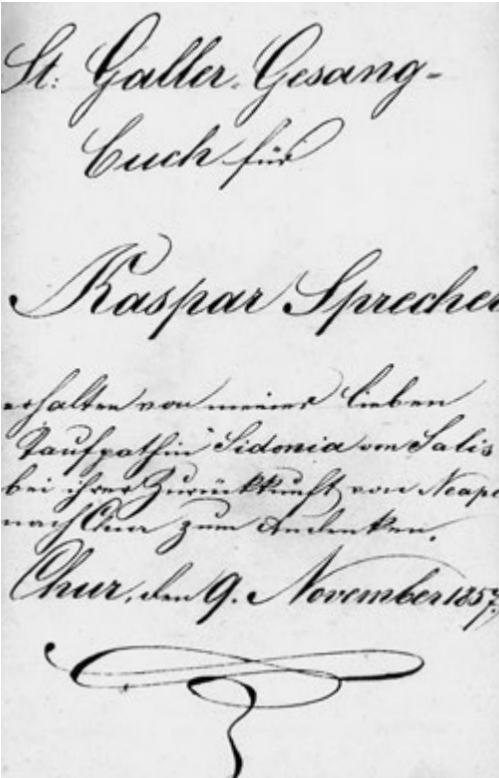 St: Galler-Gesang-
buch für
Kaspar Sprecher
erhalten von meiner lieben
Taufpathin Sidonia von Salis
bei ihrer Zurückkunft von Neape
nach Chur zum Andenken.
Chur, den 9. November 1857.